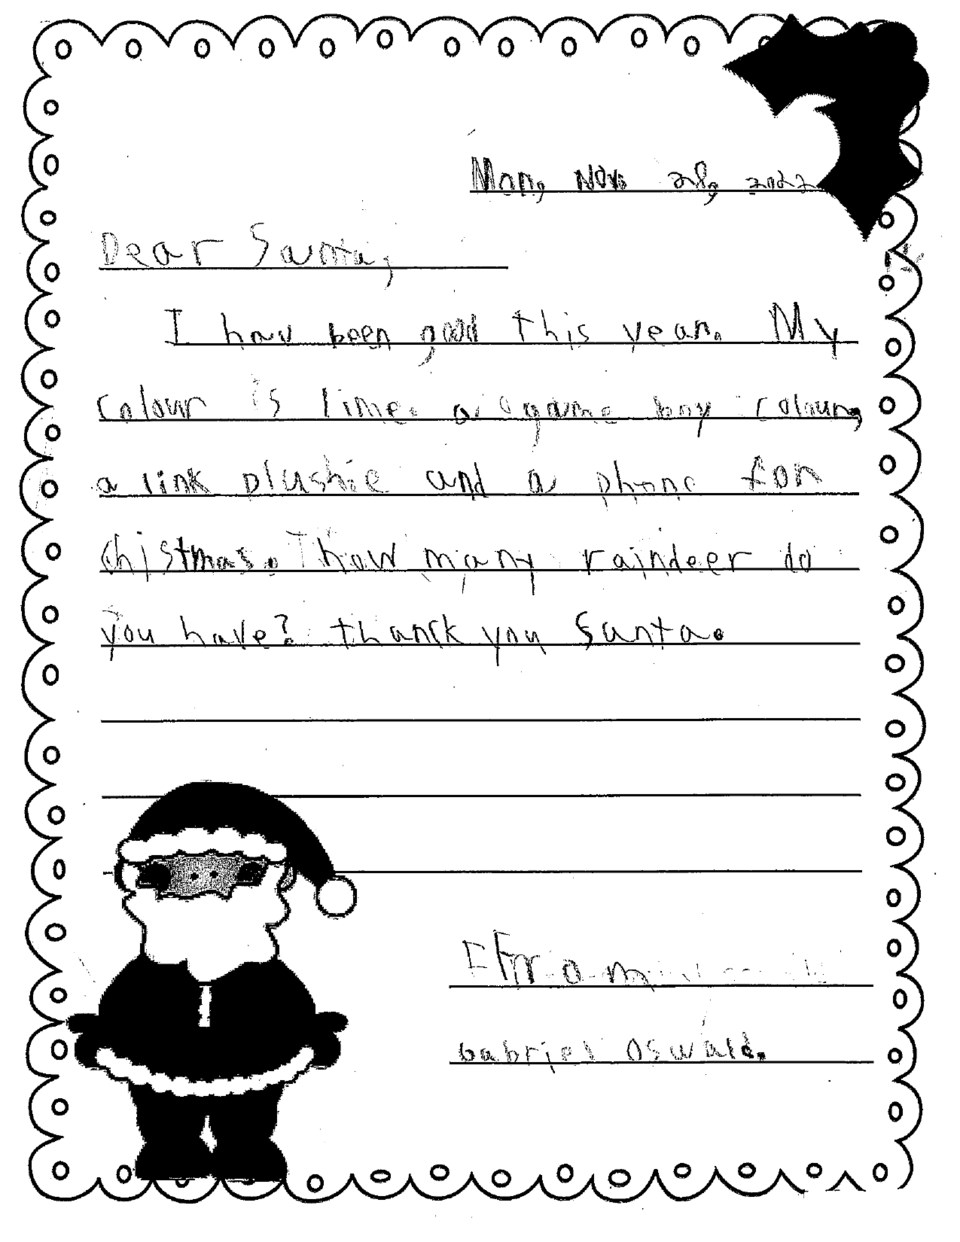 Mon, Nov. 28, 2022
Dear Santa,
I hav been good this year. My
colour is lime. a game boy colour,
a link plushie and a phone for
chistmas. how many raindeer do
you have? thanck you Santa.
From
Gabriel Oswald.